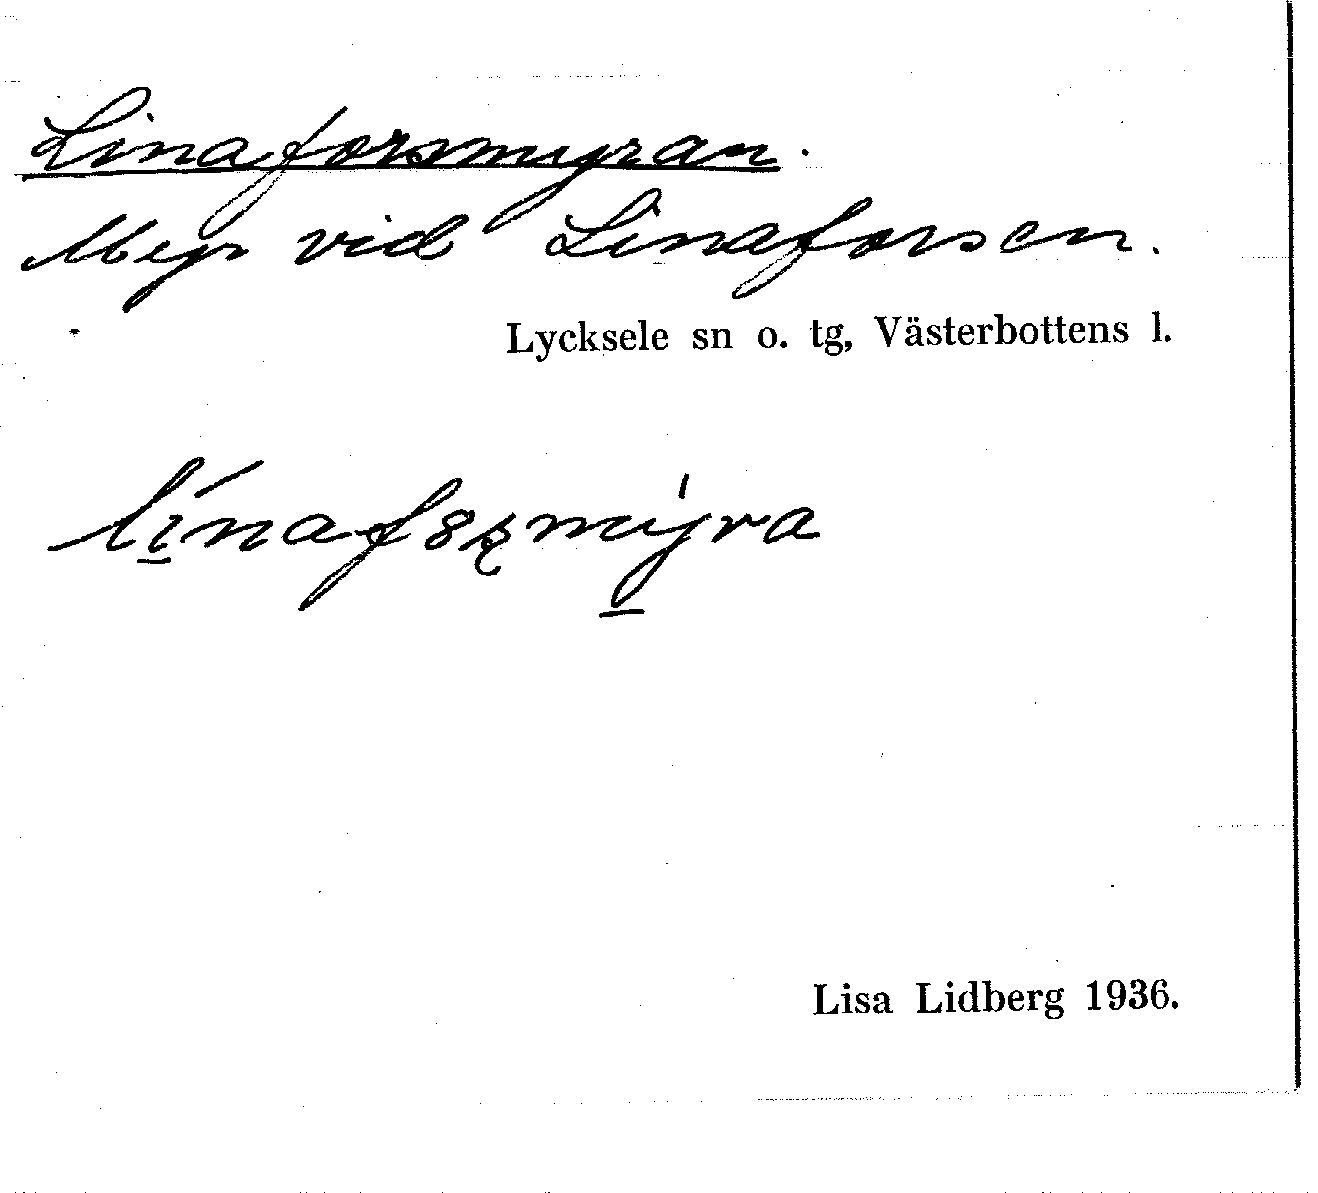 Linaforsmyran.
Myr vid Linaforsen.
Lycksele sn o. tg, Västerbottens l.
línafss̨mýra
Lisa Lidberg 1936.